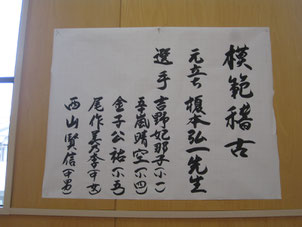 模範稽古
元立ち 榎本弘一先生
選手 吉野妃那子(小一)
五嵐晴空(小四)
金子公祐(小五)
尾作美乃李(中女)
西山賢信(中男)